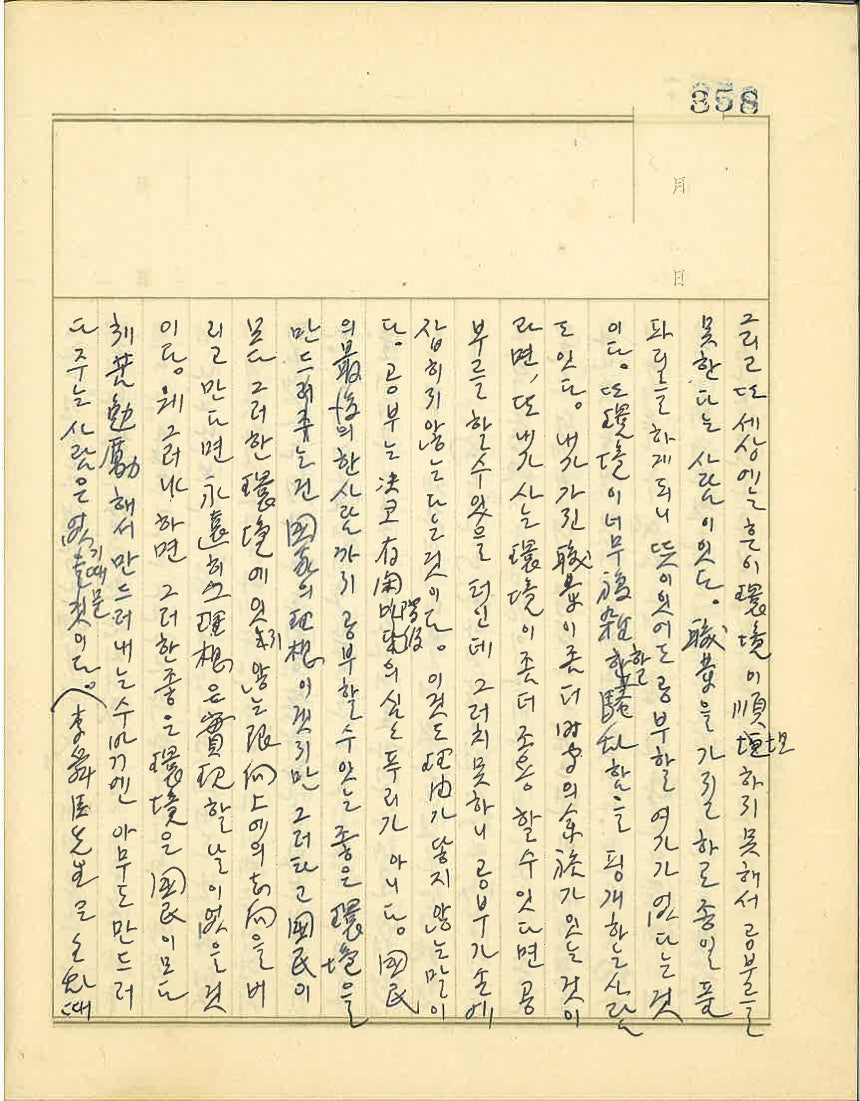 358
月
日
그리고 또 세상에는 흔이 環境이 順坦하지 못해서 공부를
못한다는 사람이 잇다. 職業을 가지고 하로종일 품
파리를 하게되니 뜻이잇어도 공부할 여가가 없다는 것
이다. 또 環境이 너무 複雜할 騷 함을 핑개하는 사람
도 잇다. 내가 가진 職業이 좀 더 時間의 余旅가 잇는 것이
라면, 또 내가 사는 環境이 좀 더 조용할 수 잇다면 공
부를 할 수 있을 터인데 그러치 못하니 공부가 손에
잡히지 않는다는 것이다. 이것도 理由가 닿지 않는 말이
다. 공부는 決코 有閑階級의 실는 푸리가 아니다. 國民
의 最後의 한사람까지 공부할 수 잇는 좋은 環境을
만드러주는 건 國家의 理想이겟지만 그러타고 國民이
모다 그러한 環境에 잇지 않는 限 向上에의 志向을 버
리고 만다면 永遠히 그 理想은 實現할 날이 없을 것
이다. 웨 그러냐 하면 그러한 좋은 環境은 國民이 모다
刻苦勉勵해서 만드러내는 수밖기엔 아무도 만드러
다 주는 사람은 없기 때문이다. (李舜臣先生은 소학때